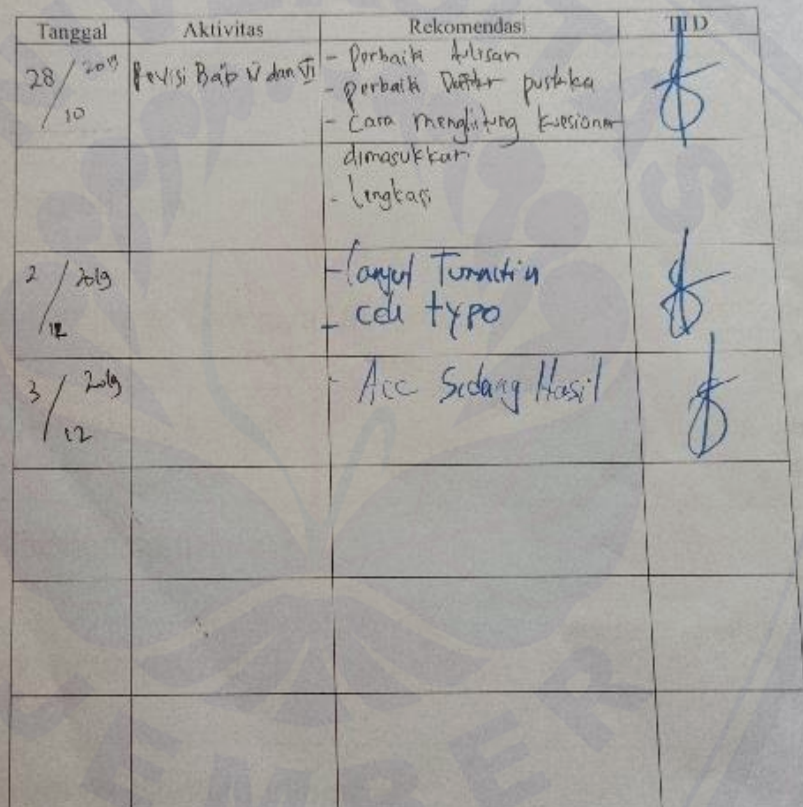 Tanggal Aktivitas Rekomendasi TTD
28/10 2019 Revisi Bab V dan VI - Perbaiki tulisan
- perbaiki Daftar pustaka
- Cara menghitung kuesioner
dimasukkan
- Lengkapi
2/12 2019 - lanjut Turnitin
- cek typo
3/12 2019 - Acc Sidang Hasil
JEMBER